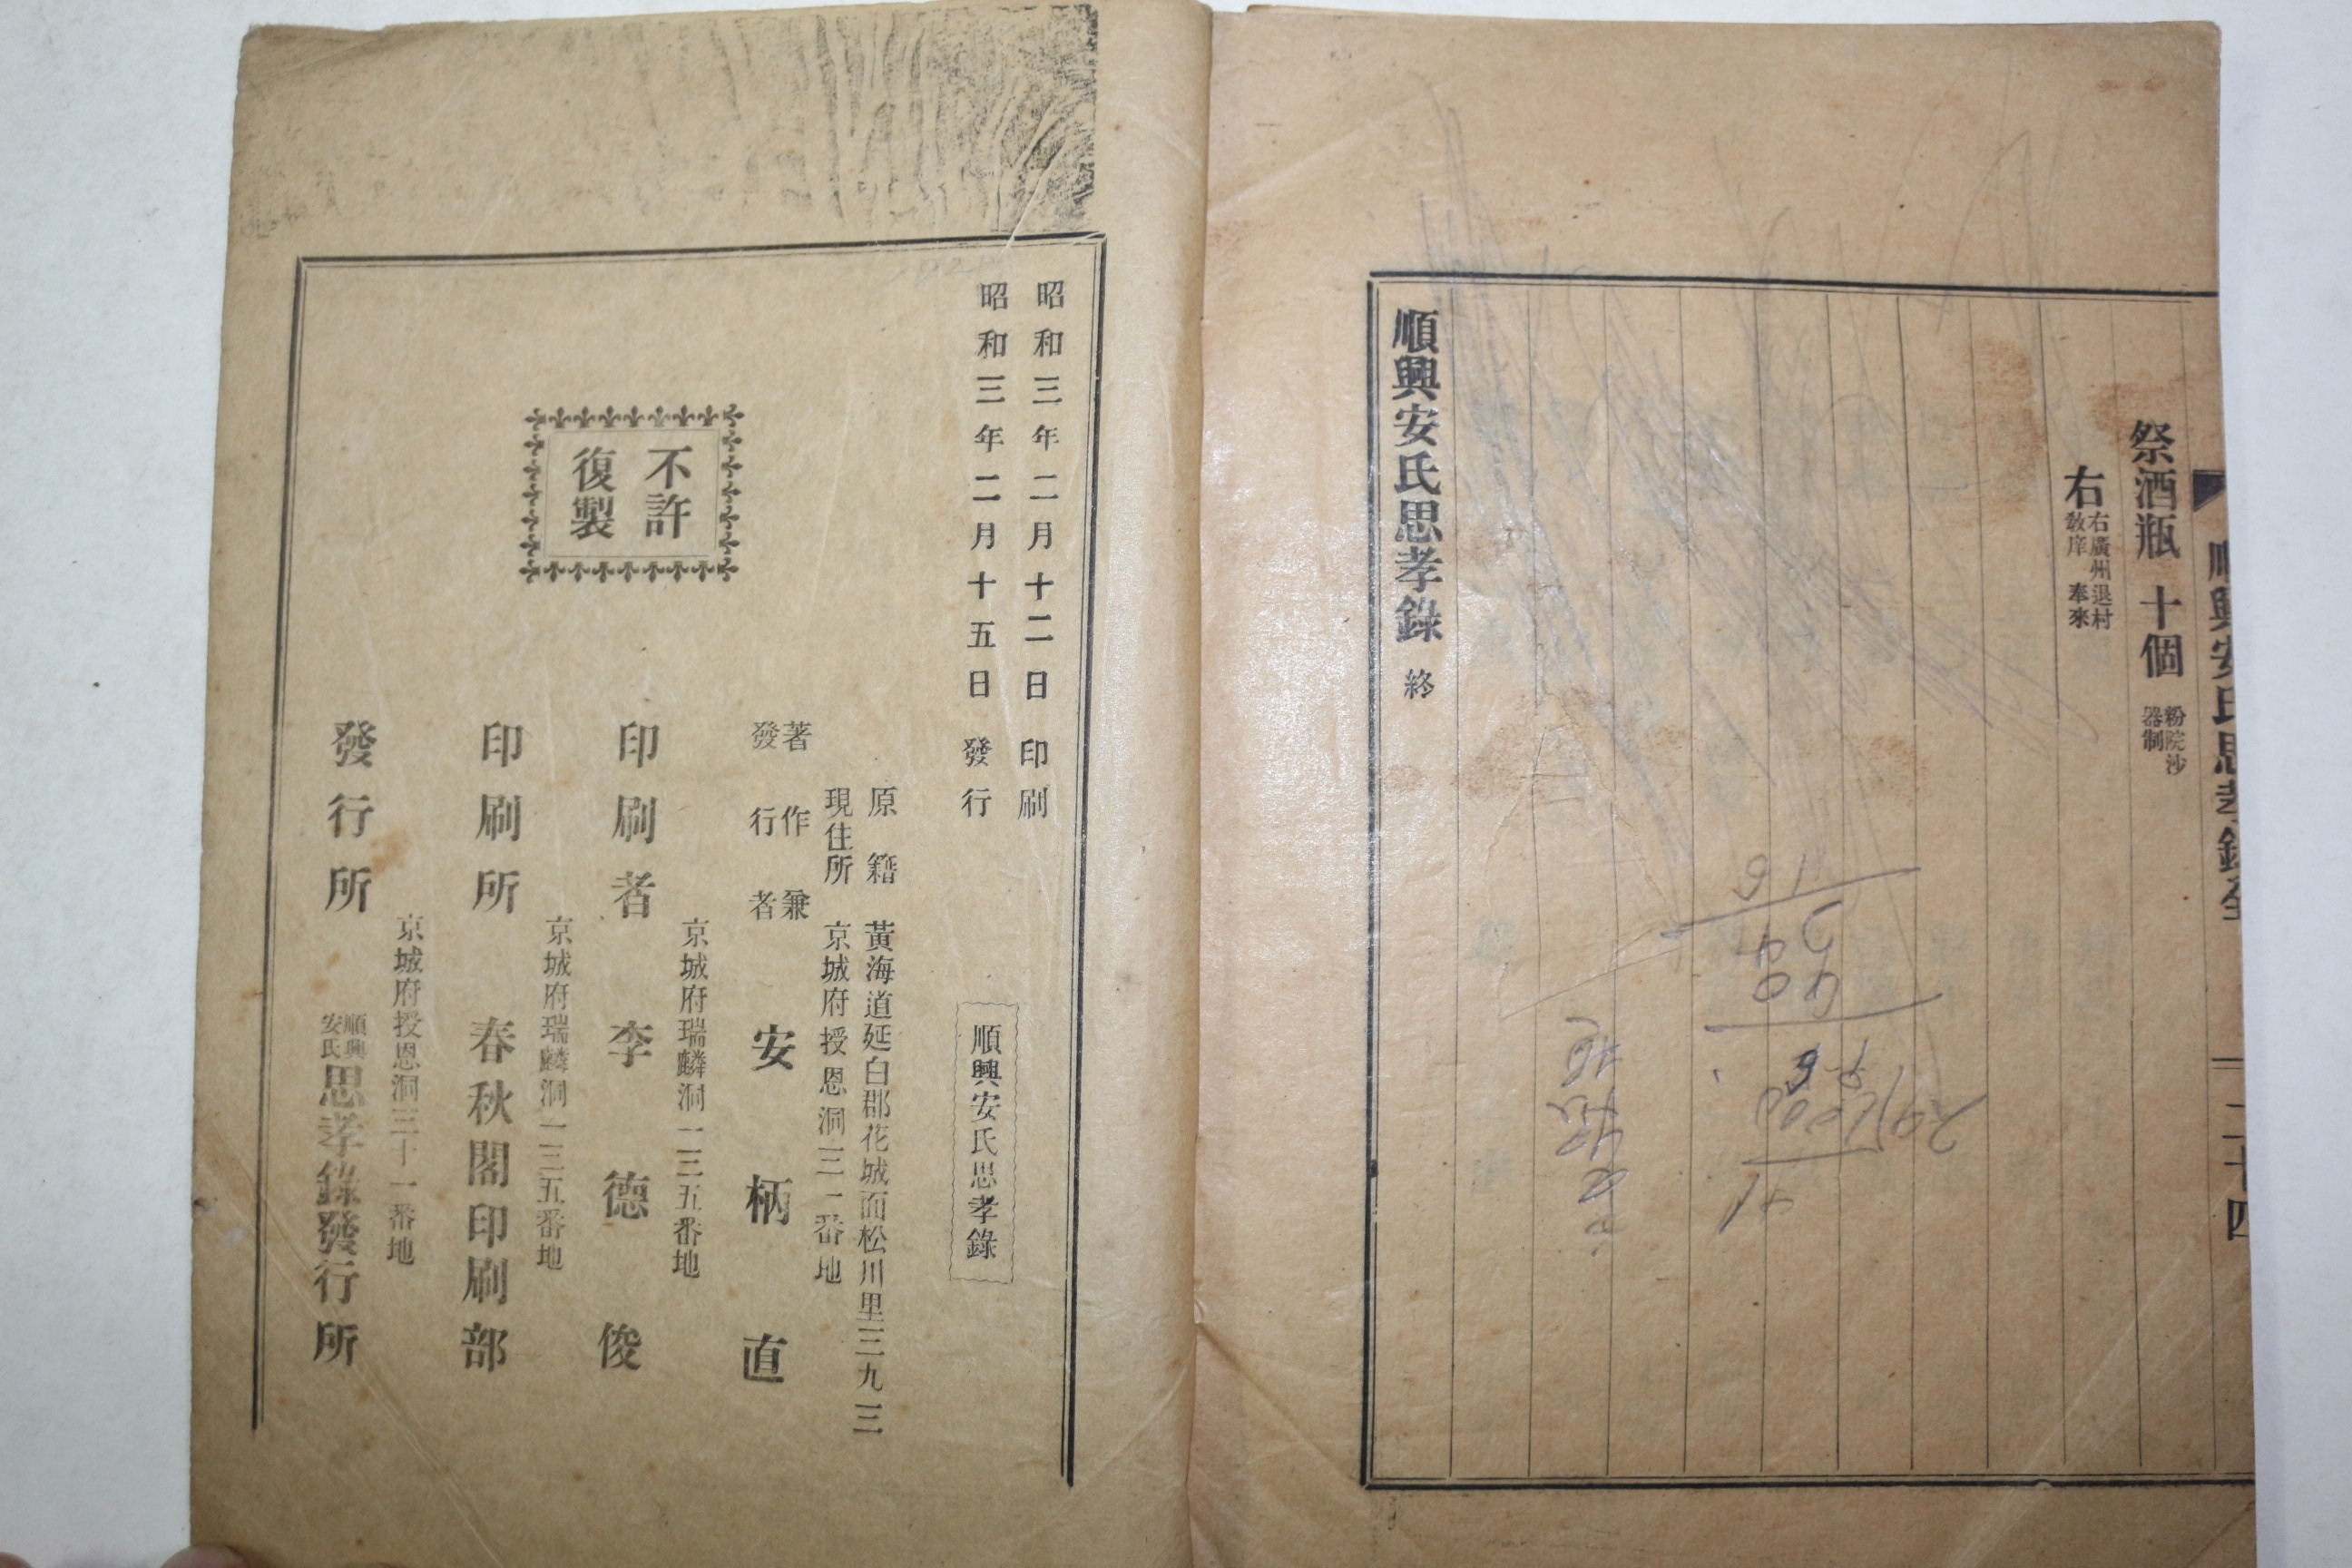 順興安氏思孝錄全
二十四
祭酒瓶 十個 粉院沙器制
右 右廣州退村敎庠 奉來
順興安氏思孝錄 終
昭和三年二月十二日 印刷
昭和三年二月十五日 發行
順興安氏思孝錄
原籍 黃海道延白郡花城面松川里三九三
現住所 京城府授恩洞三一番地
著作兼發行者 安柄直
京城府瑞麟洞一三五番地
印刷者 李德俊
京城府瑞麟洞一三五番地
印刷所 春秋閣印刷部
京城府授恩洞三十一番地
發行所 順興安氏思孝錄發行所
不許
復製